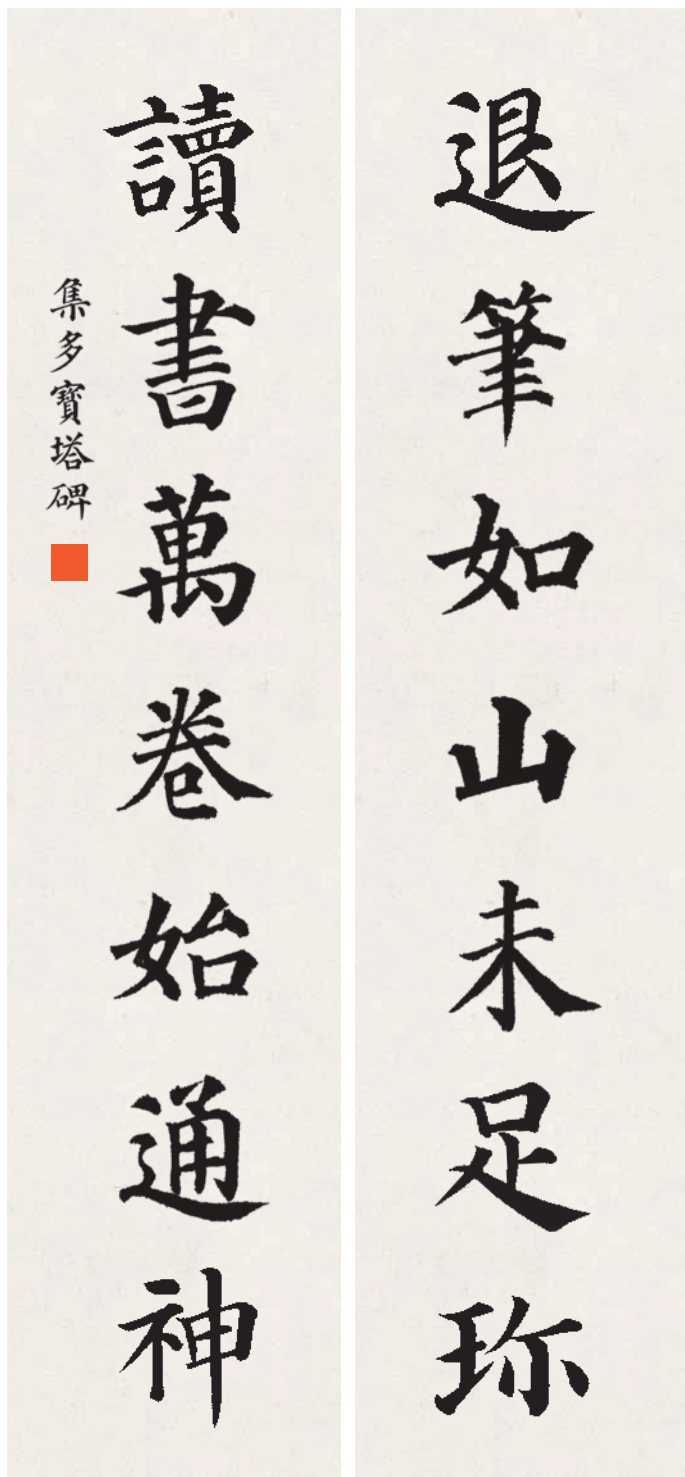 退筆如山未足珎
讀書萬卷始通神
集多寶塔碑